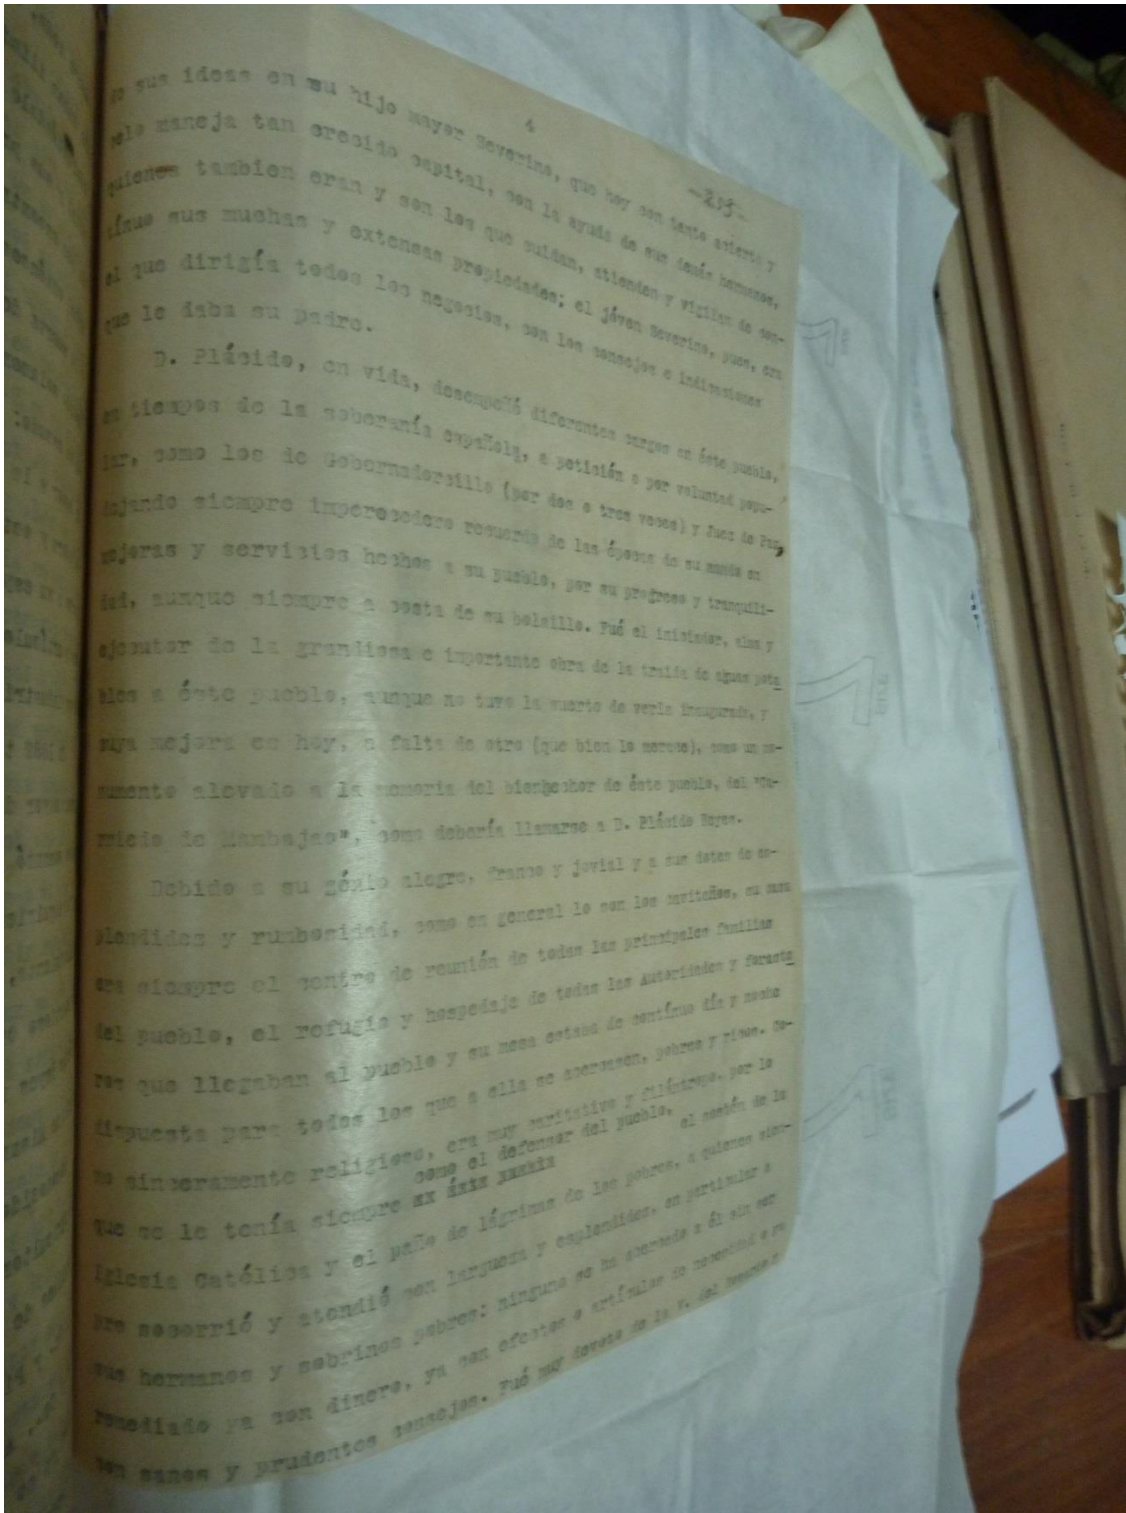 4
-295-
de sus ideas en su hijo mayor Severino, que hoy con tanto acierto y
celo maneja tan crecido capital, con la ayuda de sus demás hermanos,
quienes tambien eran y son los que cuidan, atienden y vigilan de con-
tínuo sus muchas y extensas propiedades; el jóven Severino, pues, era
el que dirigía todos los negocios, con los consejos e indicaciones
que le daba su padre.
D. Plácido, en vida, desempeñó diferentes cargos en éste pueblo,
en tiempos de la soberanía española, a petición o por voluntad popu-
lar, como los de Gobernadorcillo (por dos o tres veces) y Juez de Paz,
dejando siempre imperecedero recuerdo de las épocas de su mando en
mejoras y servicios hechos a su pueblo, por su progreso y tranquili-
dad, aunque siempre a costa de su bolsillo. Fué el iniciador, alma y
ejecutor de la grandiosa e importante obra de la traida de aguas pota
bles a éste pueblo, aunque no tuvo la suerte de verla inaugurada, y
cuya mejora es hoy, a falta de otro (que bien lo merece), como un mo-
numento elevado a la memoria del bienhechor de éste pueblo, del "Ca-
riedo de Mambajao", como debería llamarse a D. Plácido Reyes.
Debido a su génio alegre, franco y jovial y a sus dotes de es-
plendidez y rumbosidad, como en general lo son los caviteños, su casa
era siempre el centro de reunión de todas las principales familias
del pueblo, el refugio y hospedaje de todas las Autoridades y foraste
ros que llegaban al pueblo y su mesa estaba de contínuo día y noche
dispuesta para todos los que a ella se acercasen, pobres y ricos. Co-
mo sinceramente religioso, era muy caritativo y filántropo, por lo
como el defensor del pueblo,
que se le tenía siempre el sostén de la
Iglesia Católica y el paño de lágrimas de los pobres, a quienes siem-
pre socorrió y atendió con largueza y esplendidez, en particular a
sus hermanos y sobrinos pobres; ninguno se ha acercado a él sin ser
remediado ya con dinero, ya con efectos o artículos de necesidad o ya
con sanos y prudentes consejos. Fué muy devoto de la V. del Rosario y